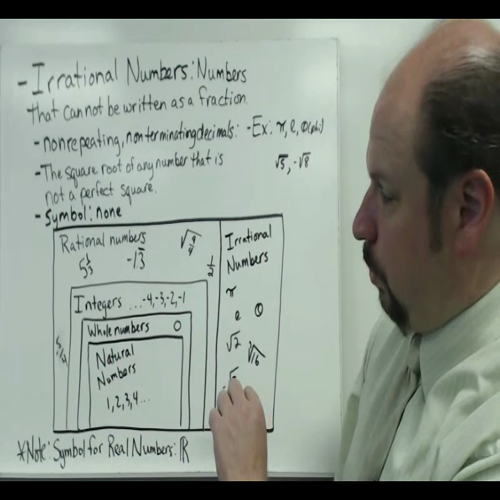 - Irrational Numbers: Numbers
that cannot be written as a fraction.
- nonrepeating, nonterminating decimals: - Ex: π, e, Φ(phi)
√5, -√8
- The square root of any number that is
not a perfect square.
- Symbol: none
Rational numbers
Integers ...-4,-3,-2,-1
Whole numbers 0
Natural
Numbers
1,2,3,4...
Irrational
Numbers
π
e Φ
√2 ∛16
*Note: Symbol for Real Numbers: ℝ